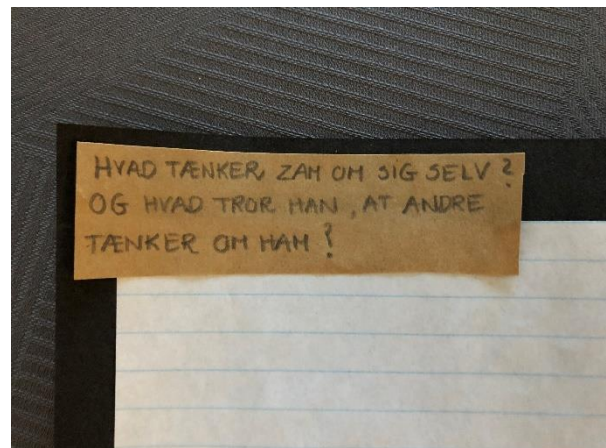 HVAD TÆNKER ZAM OM SIG SELV?
OG HVAD TROR HAN, AT ANDRE
TÆNKER OM HAM?